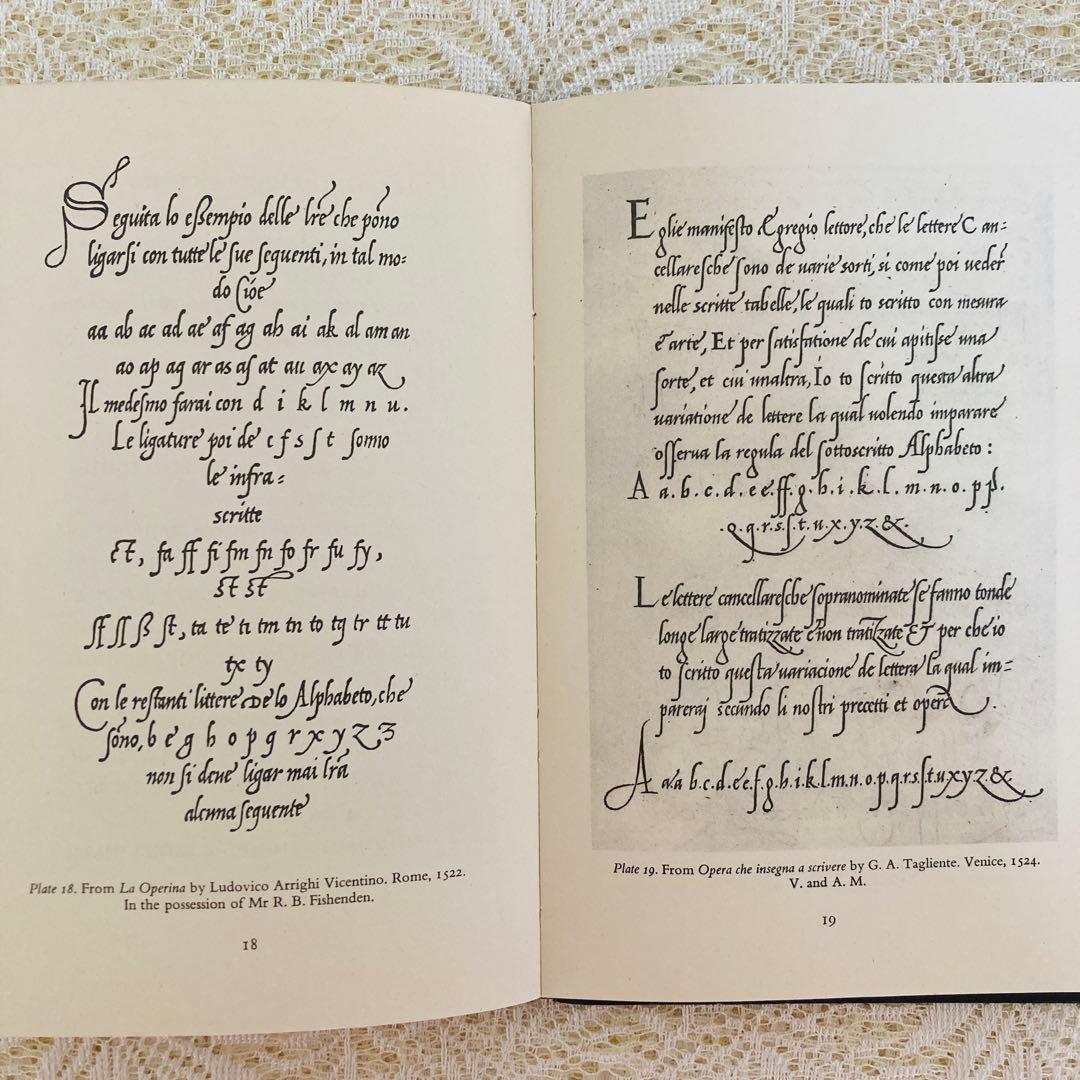 Seguita lo eßempio delle lr̃e che põno
ligarſi con tutte le ſue ſequenti, in tal mo-
do Cioe
aa ab ac ad ae af ag ah ai ak al am an
ao ap aq ar as aſ at au ax ay az
Il medeſmo farai con d i k l m n u.
Le ligature poi de c f s ſ t ſonno
le infra-
scritte
ct, fa ff fi fm fn fo fr fu fy,
st ſt
ſſ ſſ ß ſt, ta te ti tm tn to tq tr tt tu
tx ty
Con le reſtanti littere De lo Alphabeto, che
ſõno, b e g h o p q r x y z ʒ
non ſi deue ligar mai lr̃a
alcuna ſeguente
Plate 18. From La Operina by Ludovico Arrighi Vicentino. Rome, 1522.
In the possession of Mr R. B. Fishenden.
18
Eglie manifeſto Egregio lettore, che le lettere Can-
cellareſche ſono de uarie sorti, si come poi ueder
nelle scritte tabelle, le quali to scritto con mesura
e arte, Et per ſatisfatione de cui apitiſse una
ſorte, et cui unaltra, Io to ſcritto queſta altra
uariatione de lettere la qual uolendo imparare
oſſerua la regula del ſottoscritto Alphabeto:
A a.b.c.d.e e.ff.g.h.i.k.l.m.n.o.p p.
.q.q.r.s.ſ.t.u.x.y.z.&.
Le lettere cancellareſche ſopranominate ſe fanno tonde
longe large tratizzate e non tratizzate ET per che io
to ſcritto queſta uariacione de lettera la qual im-
pareraj secundo li noſtri precetti et opere.
A a.a b.c.d.e e.f.g.h.i.k.l.m.n.o.p.q.r.s.ſ.t.u.x.y.z.&.
Plate 19. From Opera che insegna a scrivere by G. A. Tagliente. Venice, 1524.
V. and A. M.
19